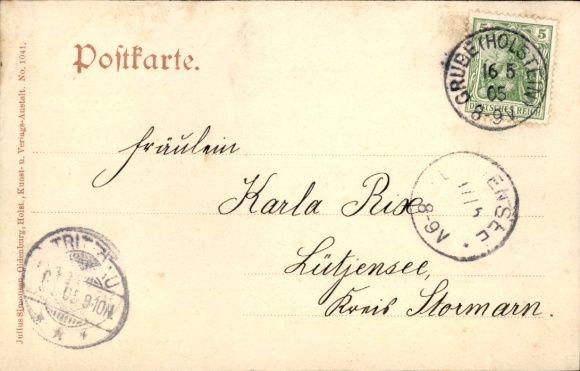 Postkarte.
5 5
DEUTSCHES REICH
GRUBE (HOLSTEIN)
16 5
05
8-9V
Fräulein
Karla Rix
Lütjensee,
Kreis Stormarn.
ENSEE
17/5
8-9V
TRITTAU
05 9-10V
Julius Simonsen, Oldenburg, Holst., Kunst- u. Verlags-Anstalt. No. 1041.